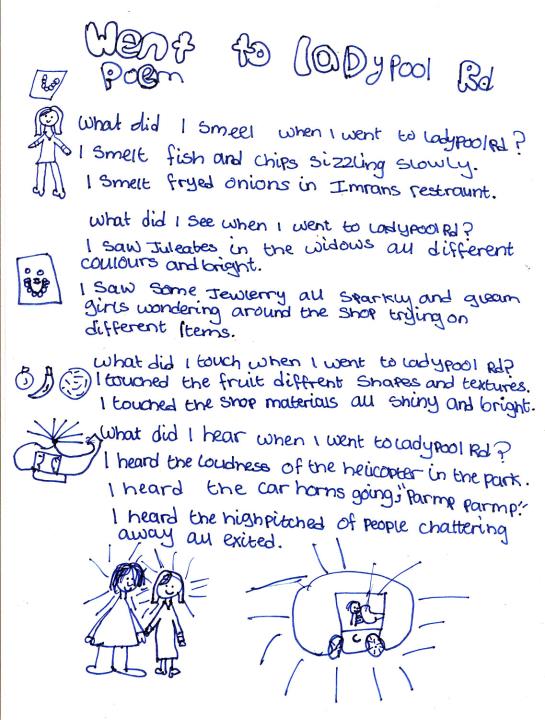 Went to ladypool Rd
Poem
What did I smeel when I went to ladypool Rd?
I smelt fish and chips sizzling slowly.
I smelt fryed onions in Imrans restraunt.
what did I see when I went to ladypool Rd?
I saw Juleabes in the widows all different
coulours and bright.
I saw some Jewlerry all sparkly and gleam
girls wondering around the shop trying on
different Items.
what did I touch when I went to ladypool Rd?
I touched the fruit diffrent shapes and textures.
I touched the shop materials all shiny and bright.
What did I hear when I went to ladypool Rd?
I heard the loudness of the helicopter in the park.
I heard the car horns going; "Parmp Parmp."
I heard the highpitched of people chattering
away all exited.